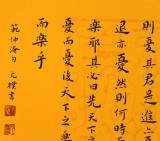 則憂其君是進
退亦憂然則何時
樂耶其必曰先天下之
憂而憂後天下之樂
而樂乎
範仲淹句 元樸書